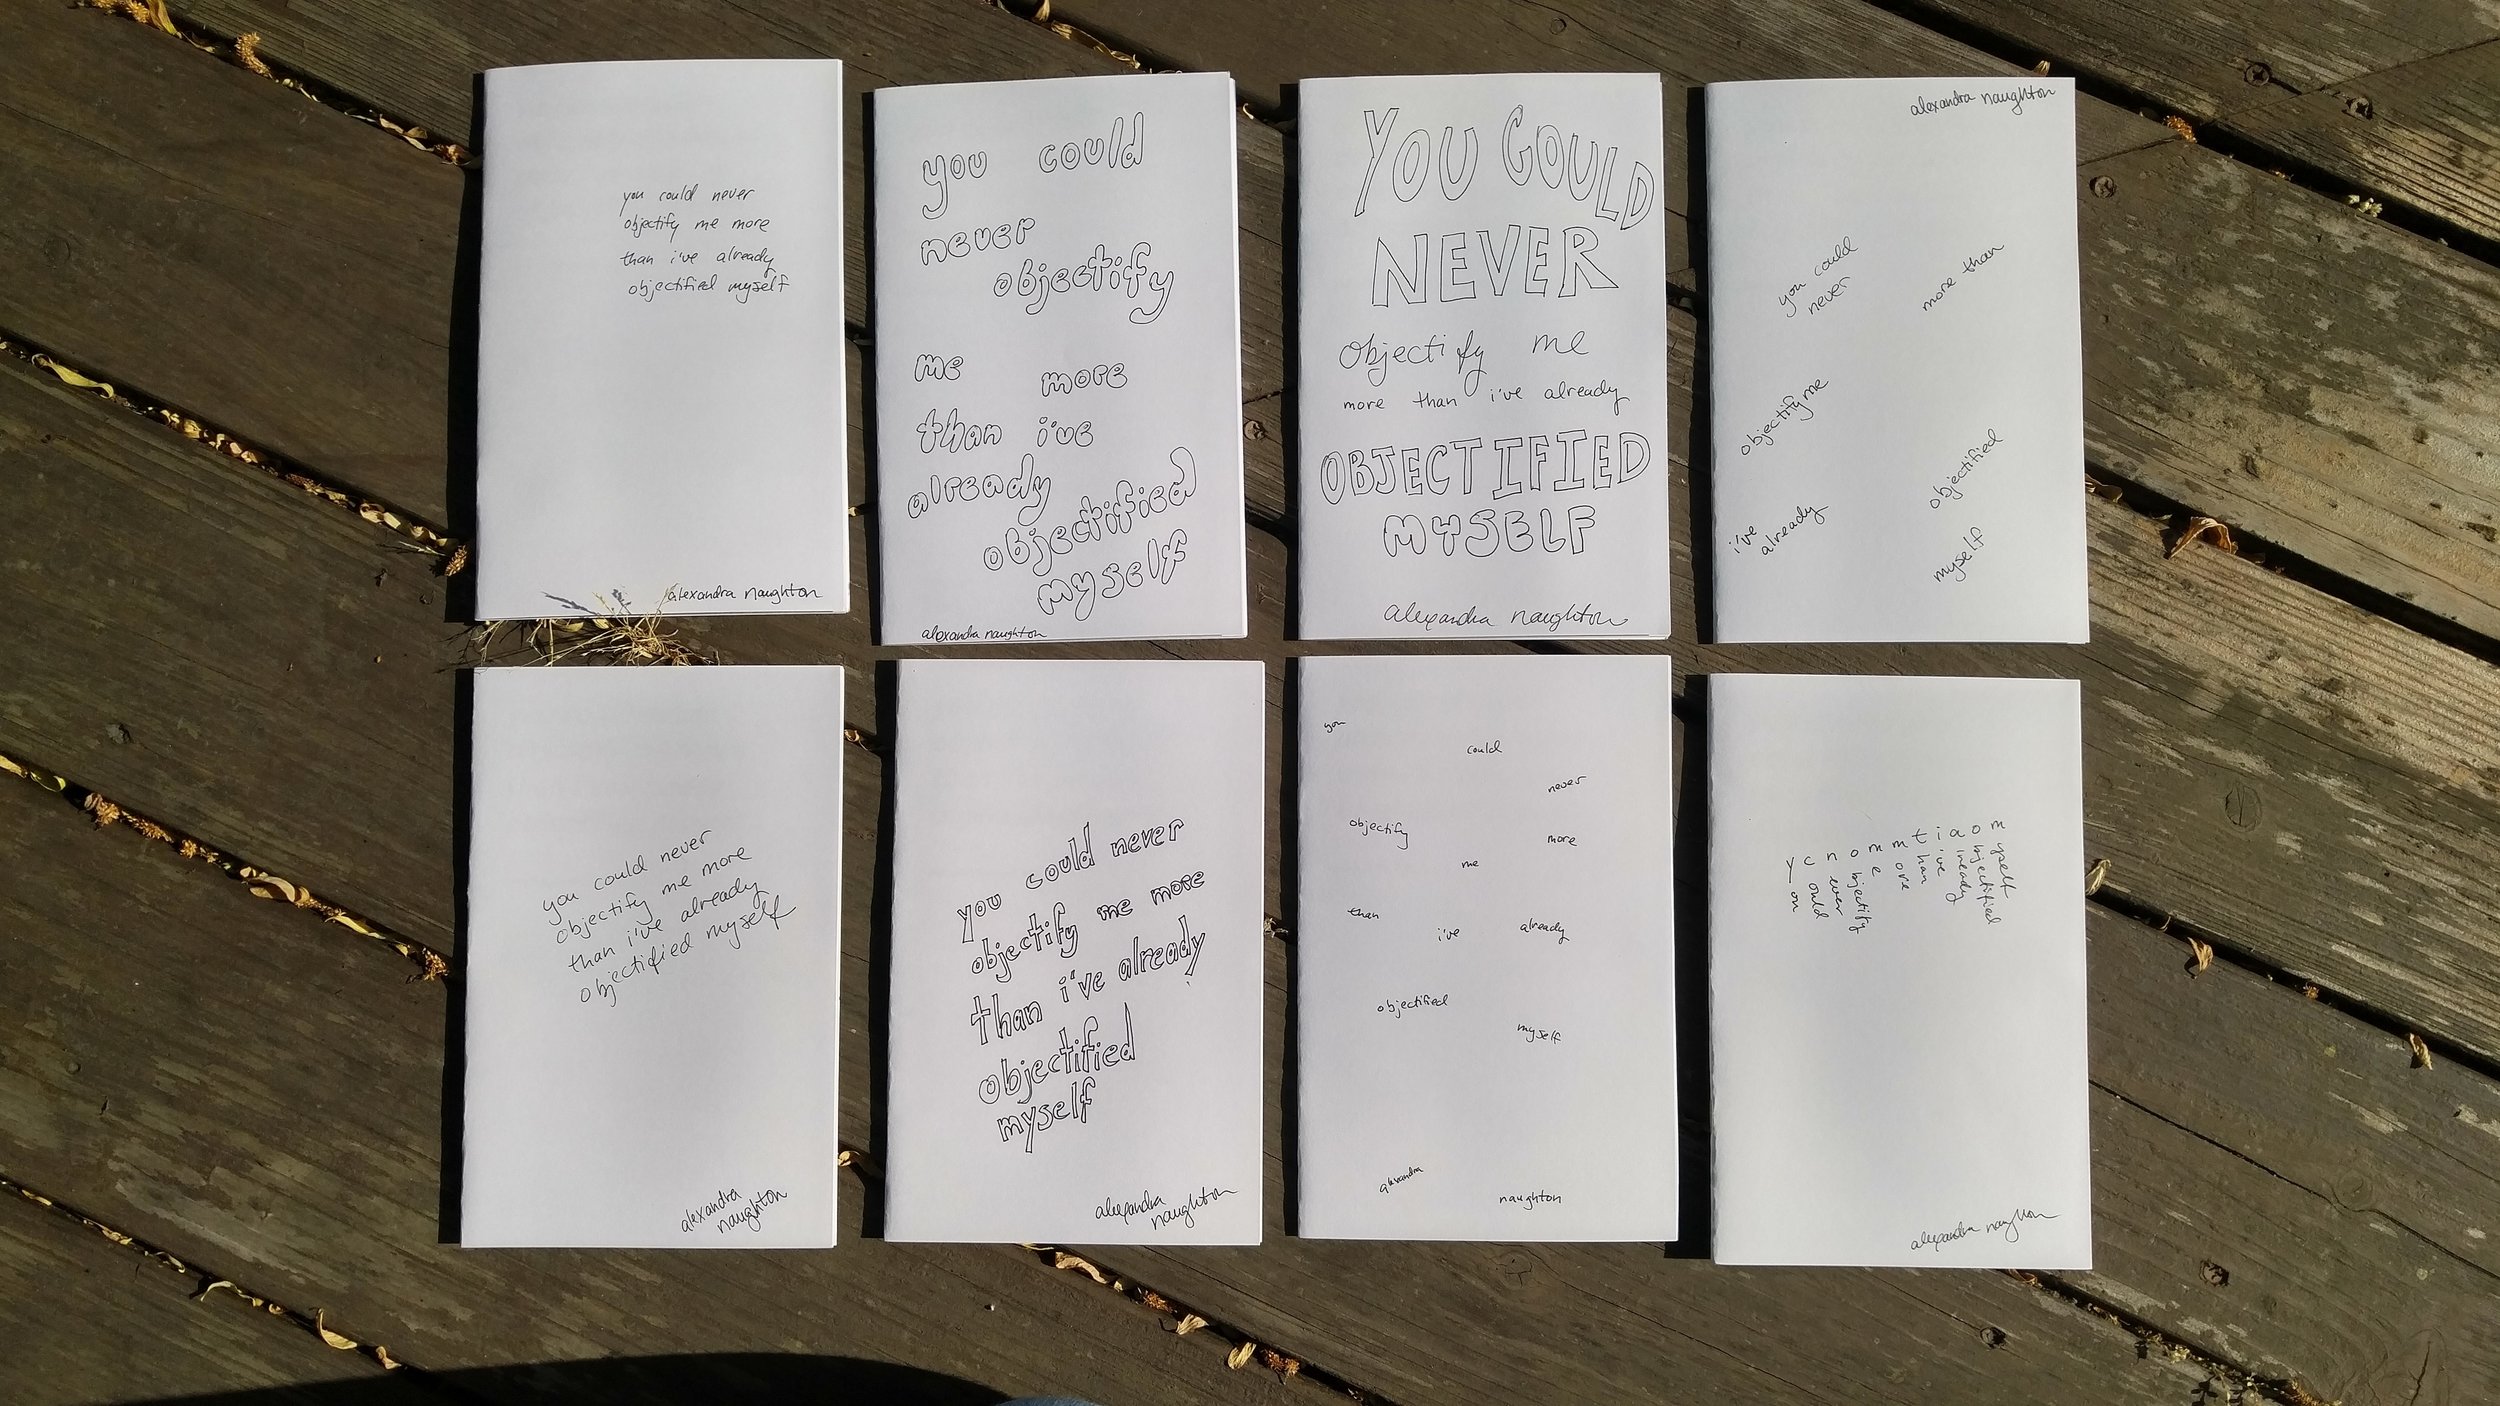 you could never
objectify me more
than i've already
objectified myself
alexandra naughton
you could
never
objectify
me more
than i've
already
objectified
myself
alexandra naughton
YOU COULD
NEVER
objectify me
more than i've already
OBJECTIFIED
MYSELF
alexandra naughton
alexandra naughton
you could
never
objectify me
i've
already
more than
objectified
myself
you could never
objectify me more
than i've already
objectified myself
alexandra
naughton
you could never
objectify me more
than i've already
objectified
myself
alexandra
naughton
you
could
never
objectify
me
more
than
i've
already
objectified
myself
alexandra
naughton
you
could
never
objectify
me
more
than
i've
already
objectified
myself
alexandra naughton